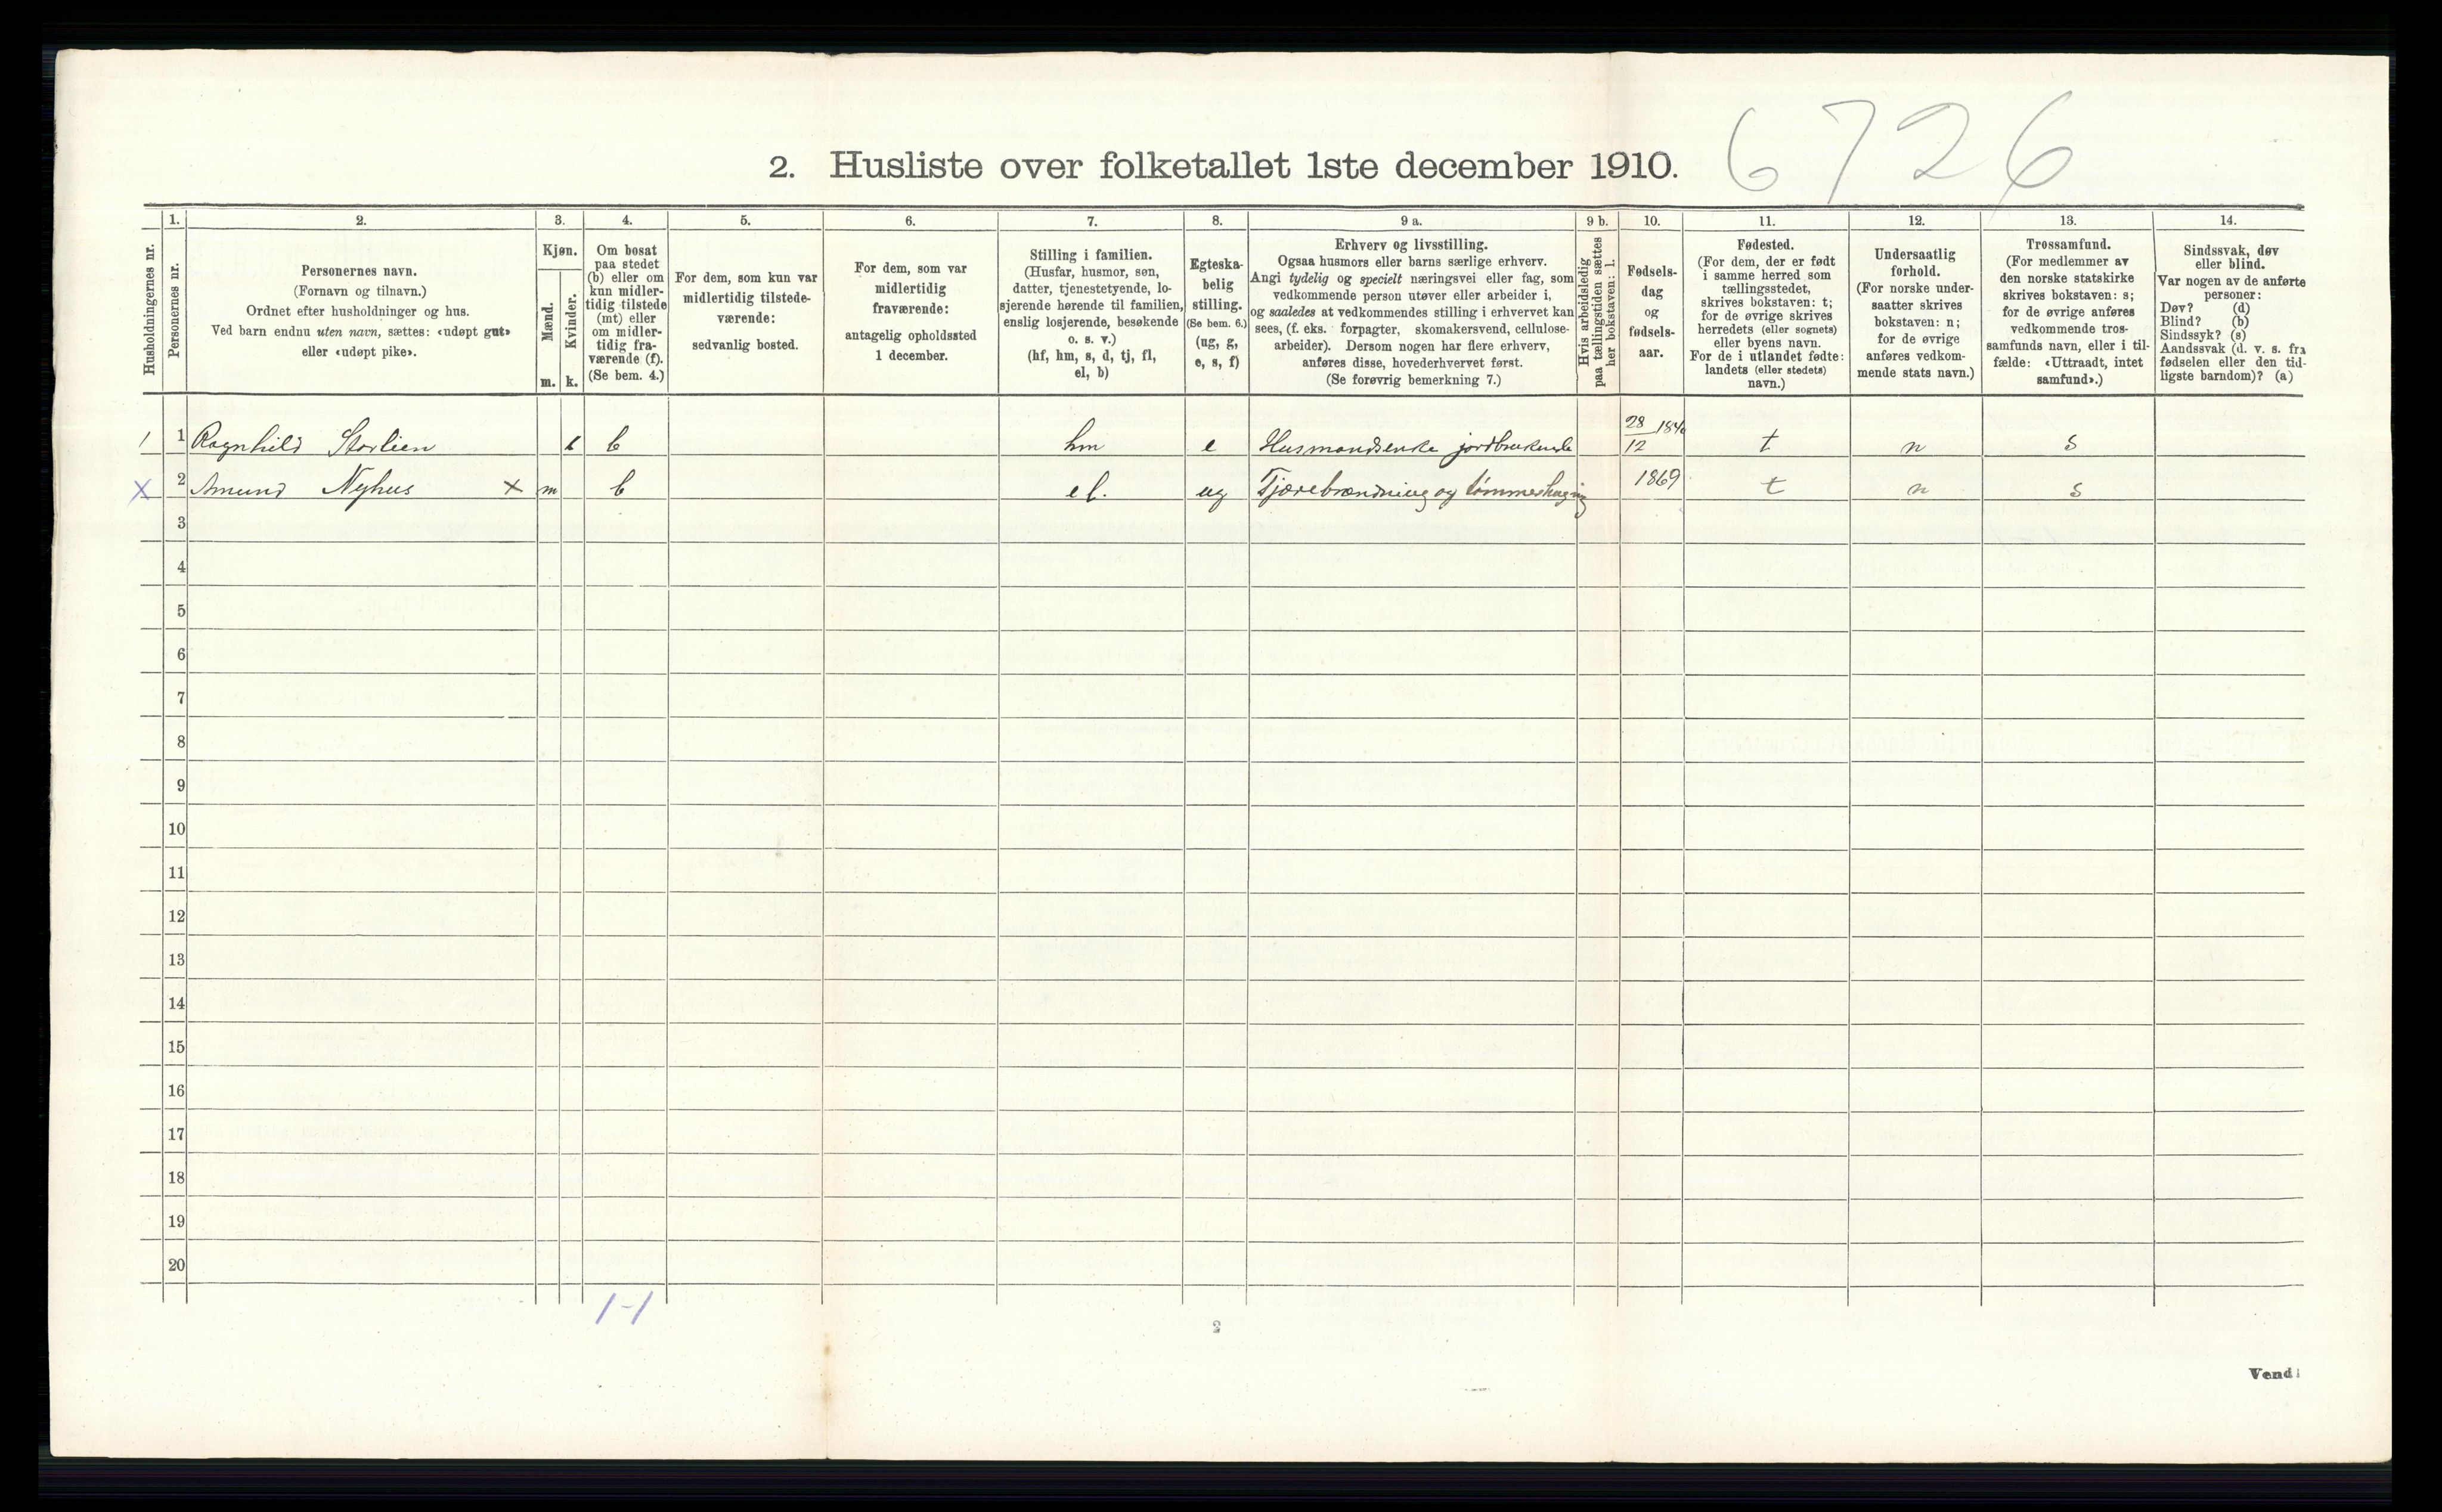 6726
2. Husliste over folketallet 1ste december 1910.
Husholdningernes nr.
1.
Personernes nr.
2.
Personernes navn.
(Fornavn og tilnavn.)
Ordnet efter husholdninger og hus.
Ved barn endnu uten navn, sættes: «udøpt gut»
eller «udøpt pike».
3.
Kjøn.
Mænd.
Kvinder.
m. k.
4.
Om bosat
paa stedet
(b) eller om
kun midler-
tidig tilstede
(mt) eller
om midler-
tidig fra-
værende (f).
(Se bem. 4.)
5.
For dem, som kun var
midlertidig tilstede-
værende:
sedvanlig bosted.
6.
For dem, som var
midlertidig
fraværende:
antagelig opholdssted
1 december.
7.
Stilling i familien.
(Husfar, husmor, søn,
datter, tjenestetyende, lo-
sjerende hørende til familien,
enslig losjerende, besøkende
o. s. v.)
(hf, hm, s, d, tj, fl,
el, b)
8.
Egteska-
belig
stilling.
(Se bem. 6.)
(ug, g,
e, s, f)
9 a.
Erhverv og livsstilling.
Ogsaa husmors eller barns særlige erhverv.
Angi tydelig og specielt næringsvei eller fag, som
vedkommende person utøver eller arbeider i,
og saaledes at vedkommendes stilling i erhvervet kan
sees, (f. eks. forpagter, skomakersvend, cellulose-
arbeider). Dersom nogen har flere erhverv,
anføres disse, hovederhvervet først.
(Se forøvrig bemerkning 7.)
9 b.
Hvis arbeidsledig
paa tællingstiden sættes
her bokstaven: l.
10.
Fødsels-
dag
og
fødsels-
aar.
11.
Fødested.
(For dem, der er født
i samme herred som
tællingsstedet,
skrives bokstaven: t;
for de øvrige skrives
herredets (eller sognets)
eller byens navn.
For de i utlandet fødte:
landets (eller stedets)
navn.)
12.
Undersaatlig
forhold.
(For norske under-
saatter skrives
bokstaven: n;
for de øvrige
anføres vedkom-
mende stats navn.)
13.
Trossamfund.
(For medlemmer av
den norske statskirke
skrives bokstaven: s;
for de øvrige anføres
vedkommende tros-
samfunds navn, eller i til-
fælde: «Uttraadt, intet
samfund».)
14.
Sindssvak, døv
eller blind.
Var nogen av de anførte
personer:
Døv? (d)
Blind? (b)
Sindssyk? (s)
Aandssvak (d. v. s. fra
fødselen eller den tid-
ligste barndom)? (a)
1 1 Ragnhild Storlien k b hm e Husmandsenke jordbrukende 28/12 t n s
X 2 Amund Nyhus X m b el. ug Tjærebrænding og tømmerhuging 1869 t n s
3
4
5
6
7
8
9
10
11
12
13
14
15
16
17
18
19
20
1-1
2
Vend!